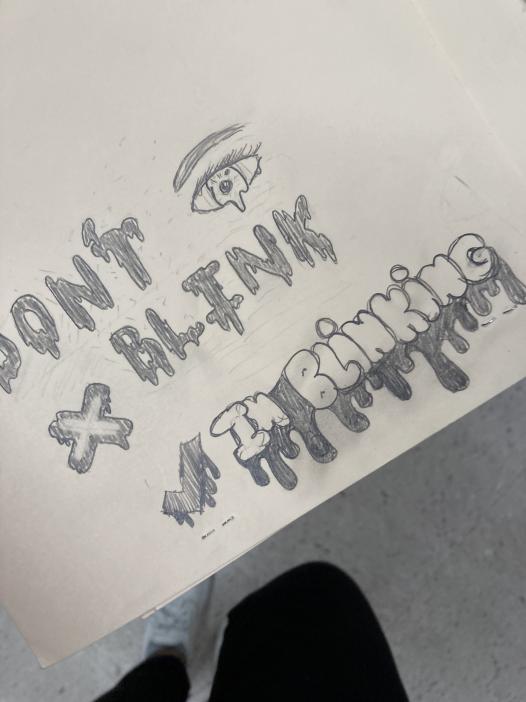 DON'T
BLINK
IM BLiNKiNG